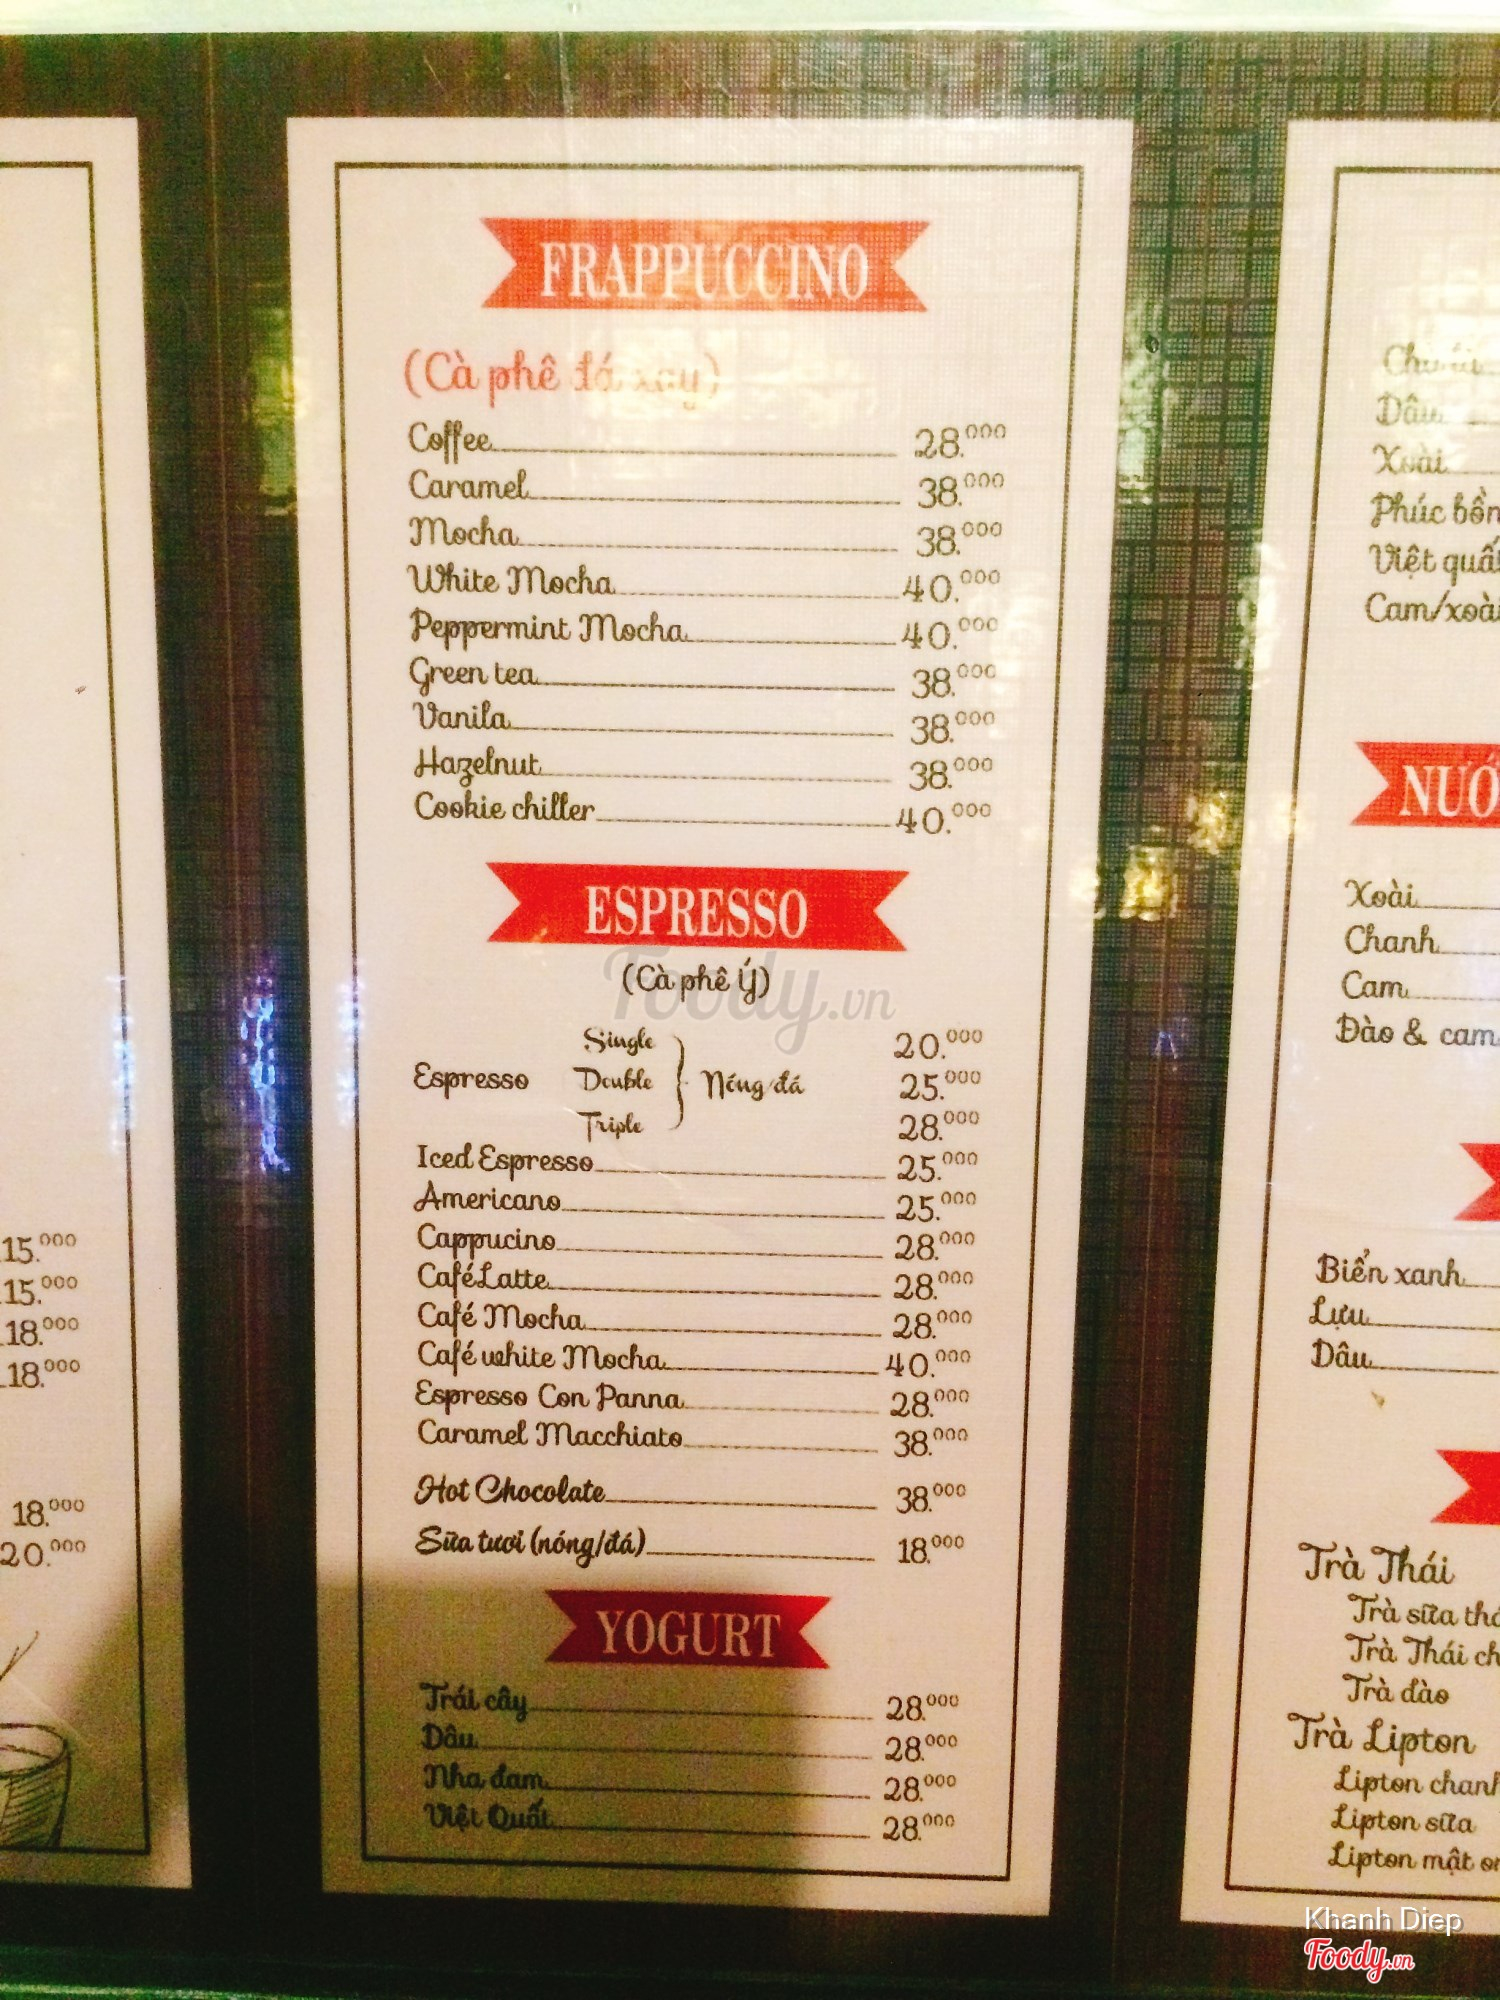 FRAPPUCCINO
(Cà phê đá xay)
Coffee 28.000
Caramel 38.000
Mocha 38.000
White Mocha 40.000
Peppermint Mocha 40.000
Green tea 38.000
Vanila 38.000
Hazelnut 38.000
Cookie chiller 40.000
ESPRESSO
(Cà phê Ý)
Foody.vn
Single 20.000
Espresso Double Nóng/đá 25.000
Triple 28.000
Iced Espresso 25.000
Americano 25.000
Cappucino 28.000
CaféLatte 28.000
Café Mocha 28.000
Café white Mocha 40.000
Espresso Con Panna 28.000
Caramel Macchiato 38.000
Hot Chocolate 38.000
Sữa tươi (nóng/đá) 18.000
YOGURT
Trái cây 28.000
Dâu 28.000
Nha đam 28.000
Việt Quất 28.000
15.000
15.000
18.000
18.000
18.000
20.000
Dâu
Xoài
Phúc bồn
Việt
Xoài
Chanh
Cam
Đào & cam
Biển xanh
Lựu
Dâu
Trà Thái
Trà sữa
Trà Thái
Trà đào
Trà Lipton
Lipton chanh
Lipton sữa
Lipton mật
Khanh Diep
Foody.vn